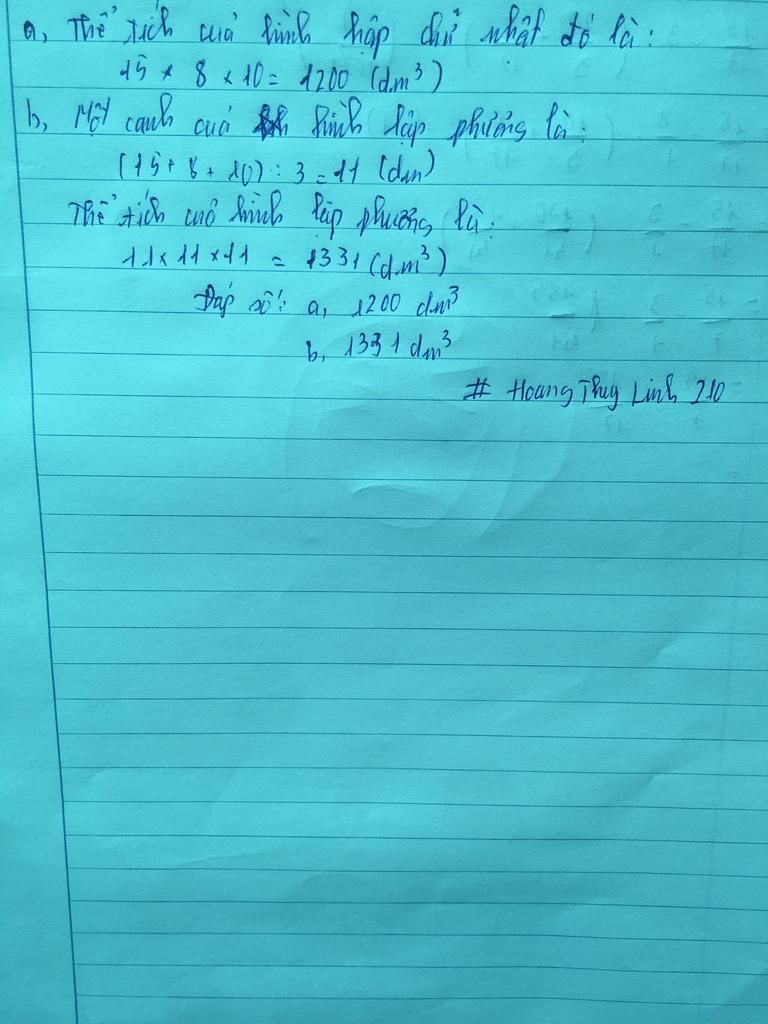 a, Thể tích của hình hộp chữ nhật đó là:
15 × 8 × 10 = 1200 (dm³)
b, Một cạnh của hình lập phương là:
(15 + 8 + 10) : 3 = 11 (dm)
Thể tích của hình lập phương là:
11 × 11 × 11 = 1331 (dm³)
Đáp số: a, 1200 dm³
b, 1331 dm³
# Hoang Thuy Linh 210